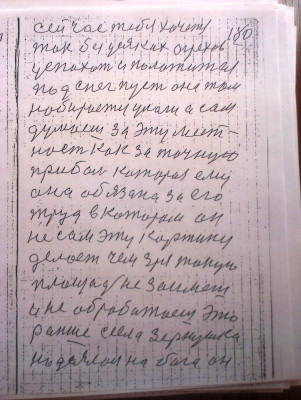 180
сейчас тебя хочет
так бы усяких грехов
успохот и положится
под снег пуст она там
набирает укали а сам
думает за эту мест-
ност как за точную
прибыл которая ему
она обязана за его
труд в котором он
не сам эту картину
делает чем зря такую
площад не заимет
и не обработает Это
ранше села Зернушка
надеялся на бога он